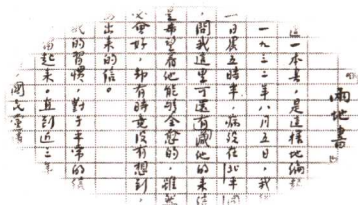 兩地書
這一本書，是這樣地編
一九三二年八月五日，我
一日晨五時半，病沒在北平
，問我這里可還有藏他的來信
是希望着他能夠全愈的，雖然
必會好，却有時竟沒有想到，
出來的信。
的習慣，對于平常的信
起來，直到近三年
國民黨